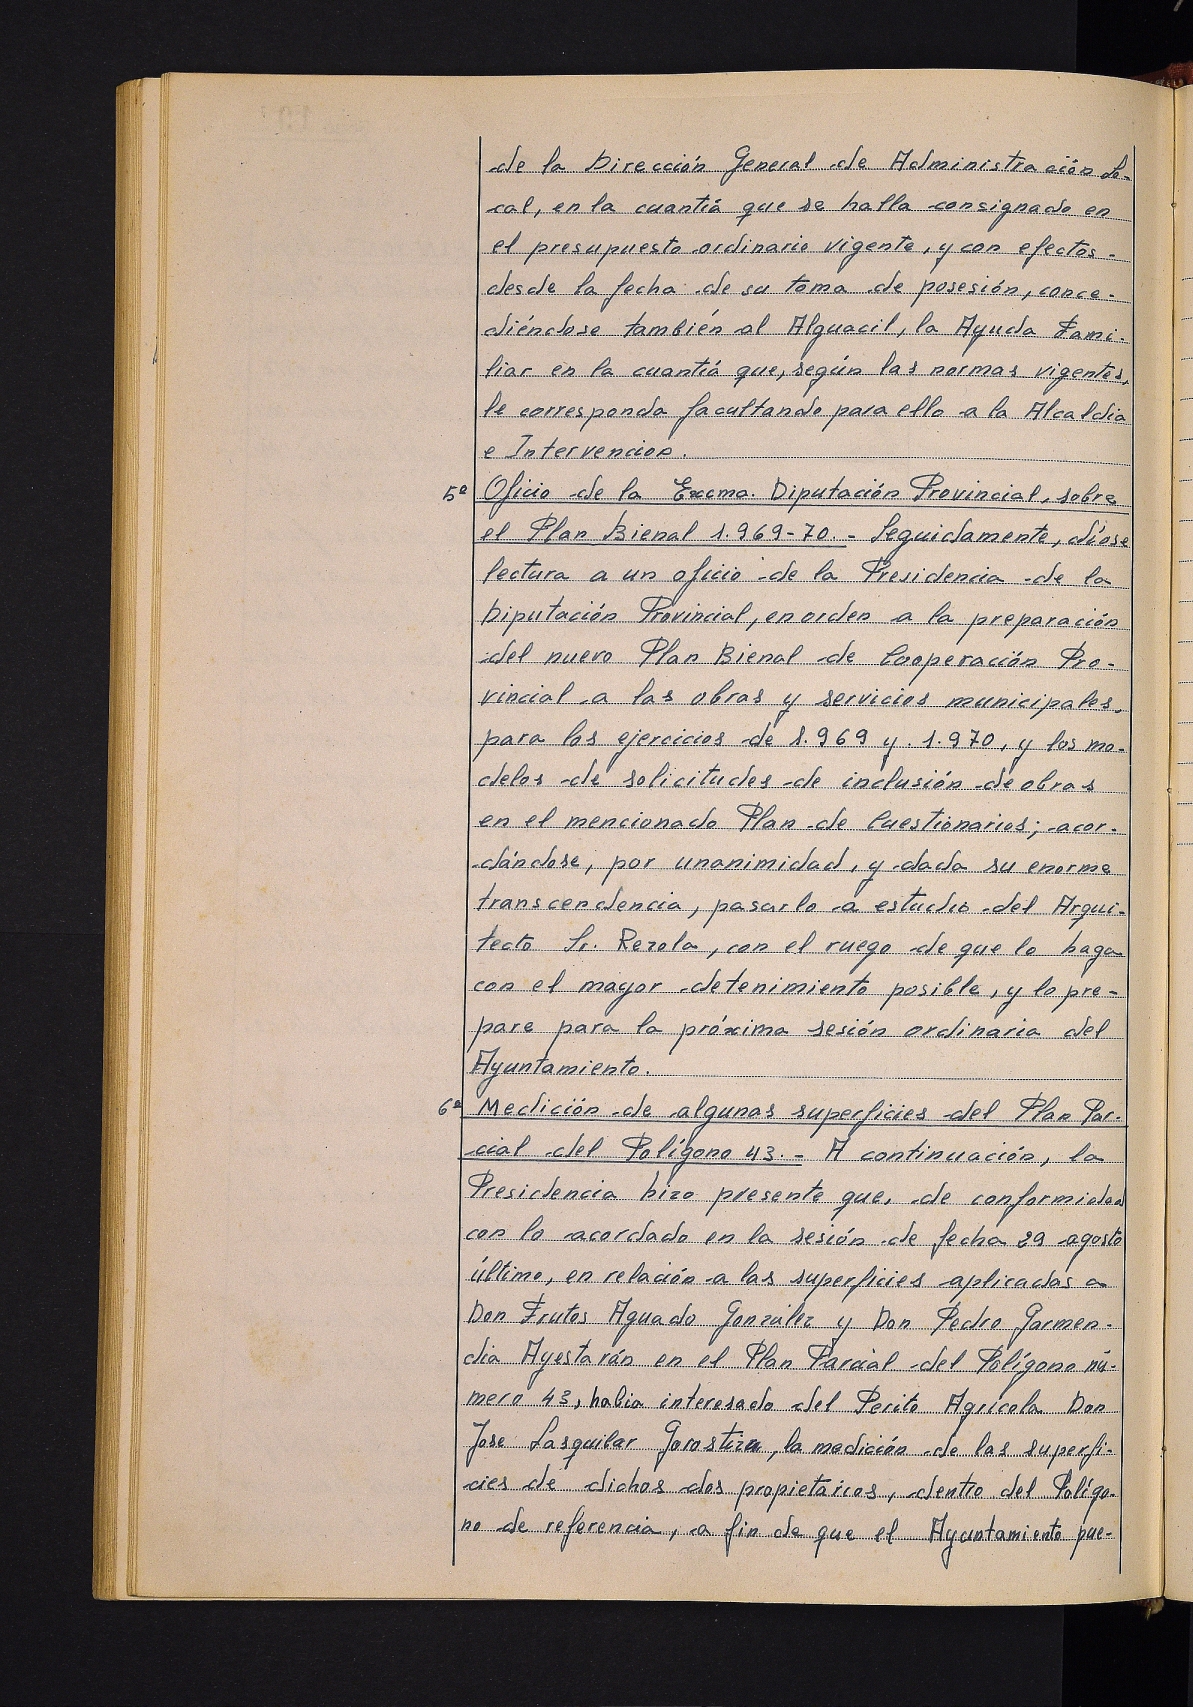 de la Dirección General de Administración Lo-
cal, en la cuantiá que se halla consignado en
el presupuesto ordinario vigente, y con efectos
desde la fecha de su toma de posesión, conce-
diéndose también al Alguacil, la Ayuda Fami-
liar en la cuantiá que, según las normas vigentes,
le corresponda facultando para ello a la Alcaldia
e Intervencion.
5º Oficio de la Excma. Diputación Provincial, sobre
el Plan Bienal 1.969-70.- Seguidamente, dióse
lectura a un oficio de la Presidencia de la
Diputación Provincial, en orden a la preparación
del nuevo Plan Bienal de Cooperación Pro-
vincial a las obras y servicios municipales,
para los ejercicios de 1.969 y 1.970, y los mo-
delos de solicitudes de inclusión de obras
en el mencionado Plan de Cuestionarios; acor-
dándose, por unanimidad, y dada su enorme
transcendencia, pasarlo a estudio del Arqui-
tecto Sr. Rezola, con el ruego de que lo haga
con el mayor detenimiento posible, y lo pre-
pare para la próxima sesión ordinaria del
Ayuntamiento.
6º Medición de algunas superficies del Plan Par-
cial del Polígono 43.- A continuación, la
Presidencia hizo presente que, de conformidad
con lo acordado en la sesión de fecha 29 agosto
último, en relación a las superficies aplicadas a
Don Frutos Aguado González y Don Pedro Garmen-
dia Ayestarán en el Plan Parcial del Polígono nú-
mero 43, habia interesado del Perito Agrícola Don
Jose Lasquibar Gorostiza, la medición de las superfi-
cies de dichos dos propietarios, dentro del Polígo-
no de referencia, a fin de que el Ayuntamiento pue-